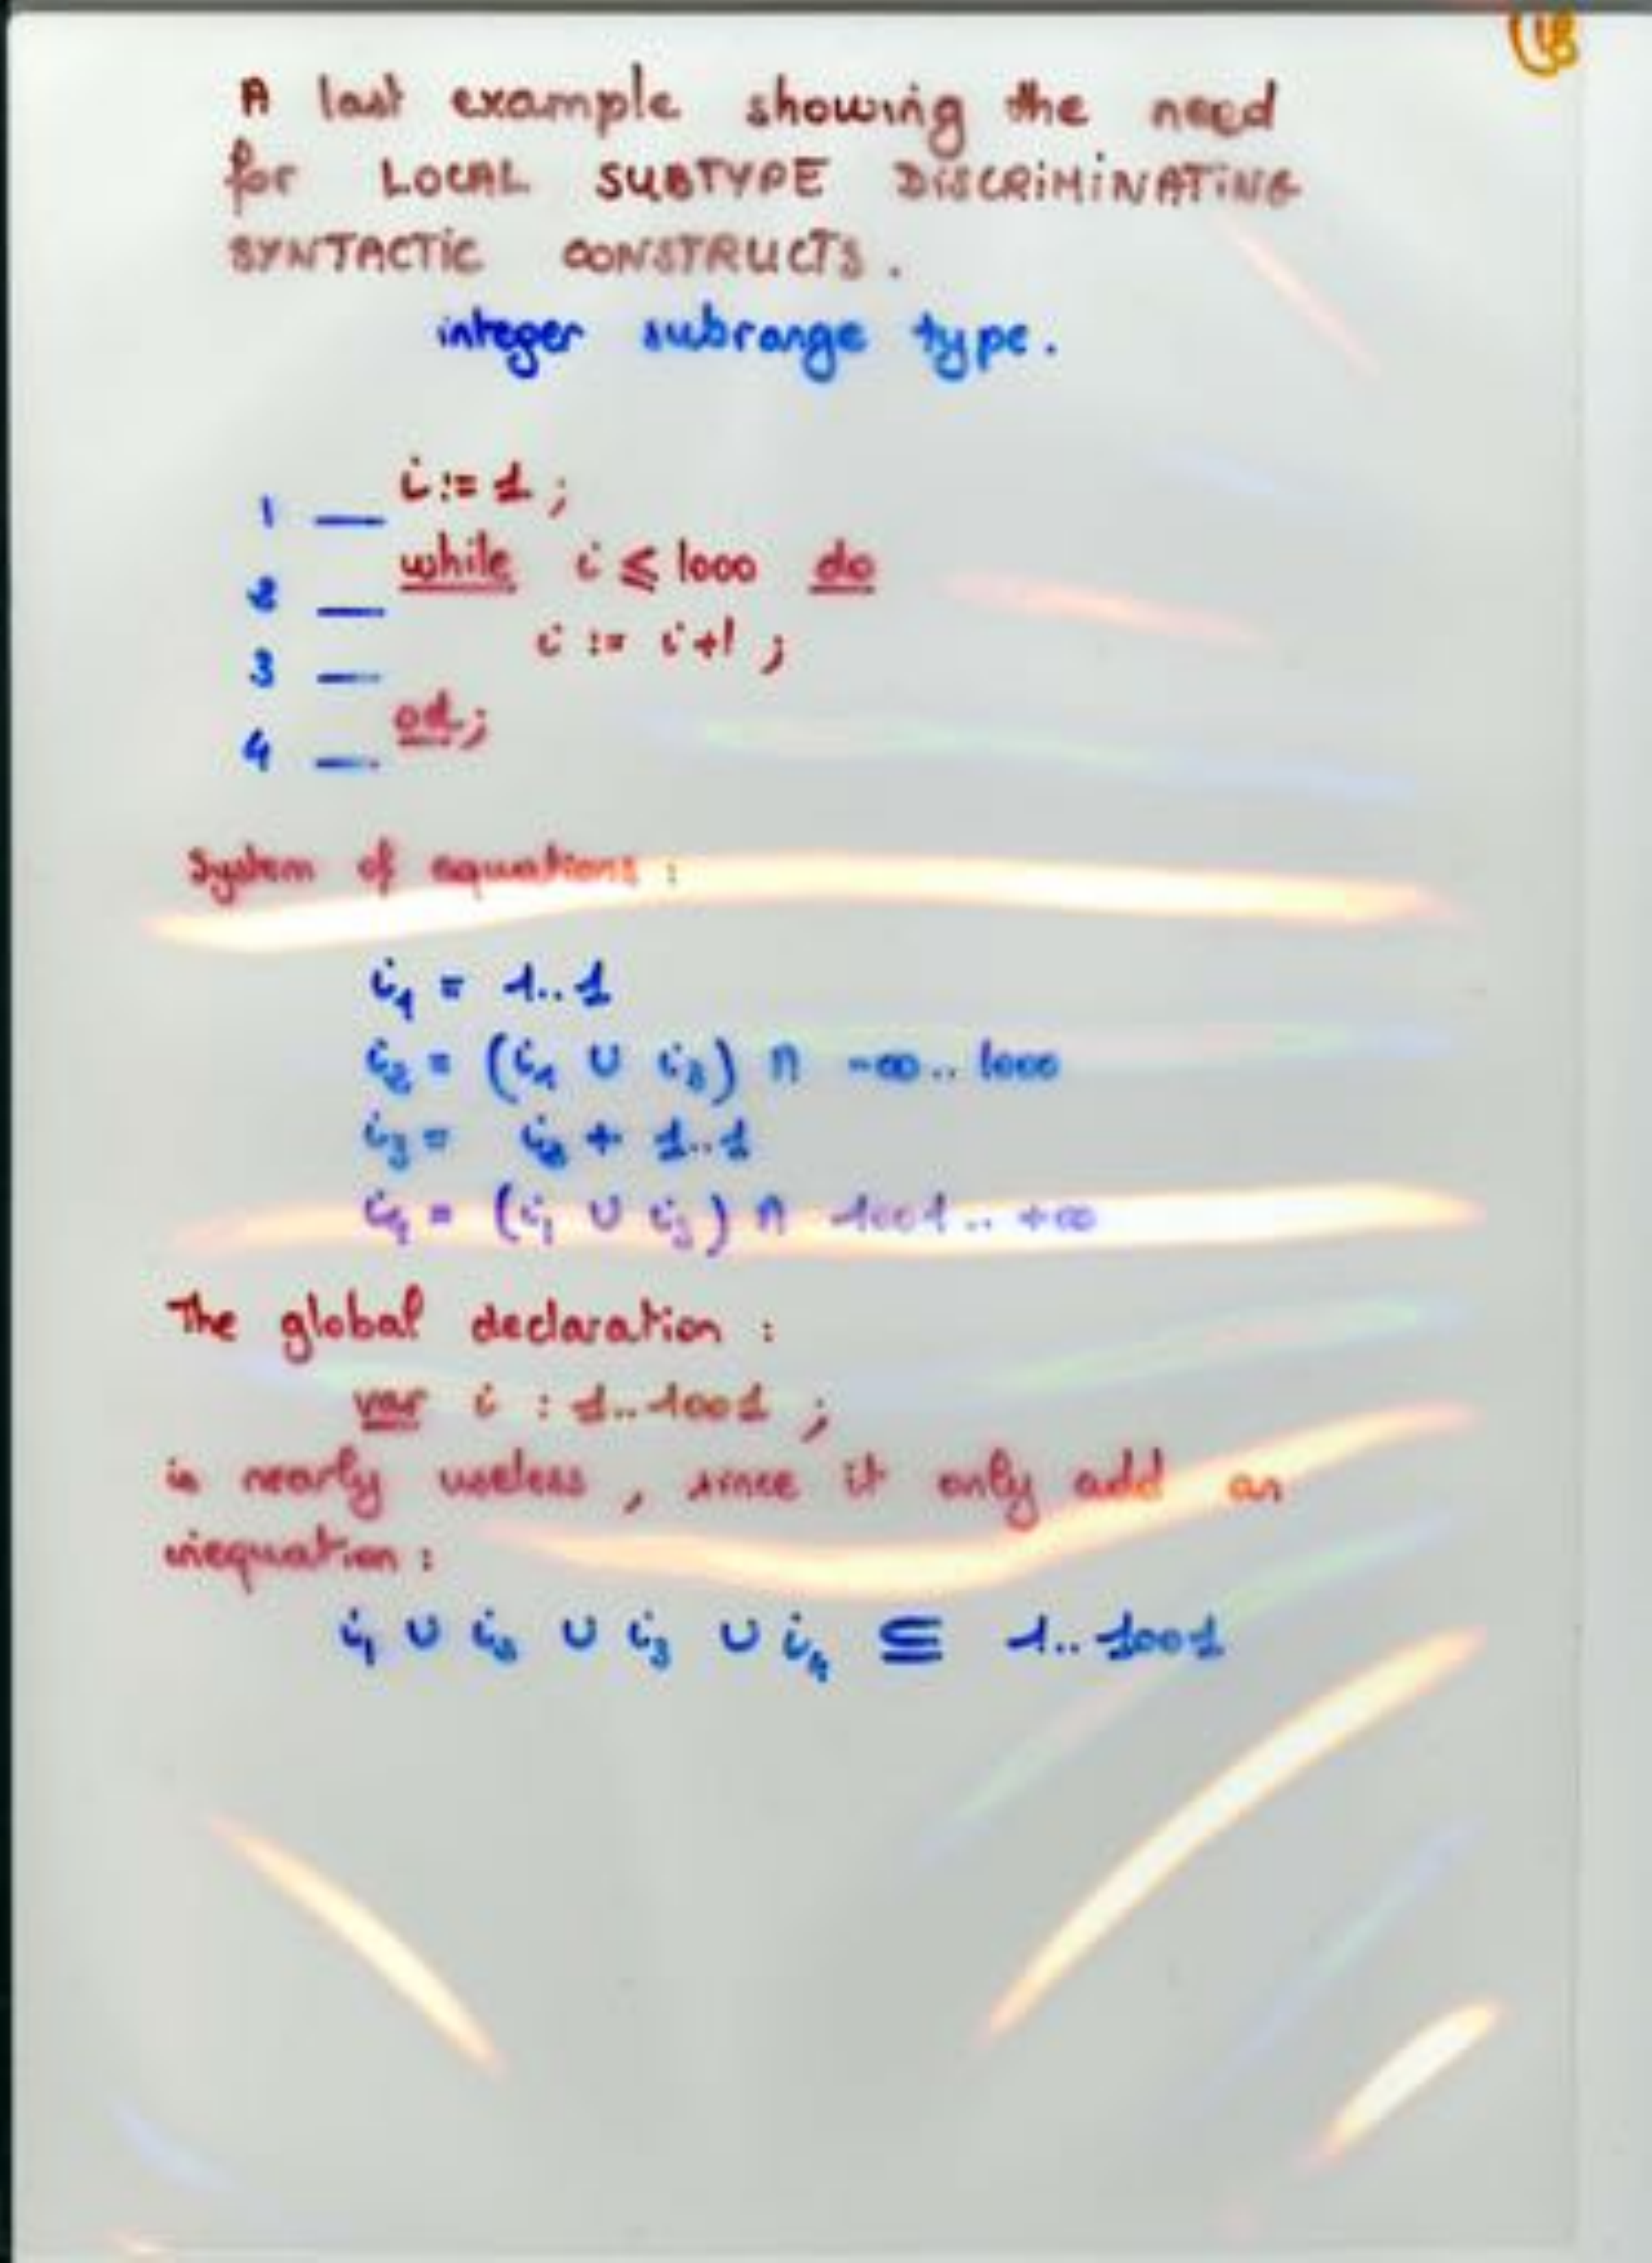 18
A last example showing the need
for LOCAL SUBTYPE DISCRIMINATING
SYNTACTIC CONSTRUCTS.
integer subrange type.
i := 1 ;
1 __
while i ≤ 1000 do
2 __
i := i+1 ;
3 __
od ;
4 __
System of equations :
i₁ = 1..1
i₂ = (i₁ ∪ i₃) ∩ -∞..1000
i₃ = i₂ + 1..1
i₄ = (i₁ ∪ i₃) ∩ 1001..+∞
The global declaration :
var i : 1..1001 ;
is nearly useless, since it only add an
inequation :
i₁ ∪ i₂ ∪ i₃ ∪ i₄ ⊆ 1..1001